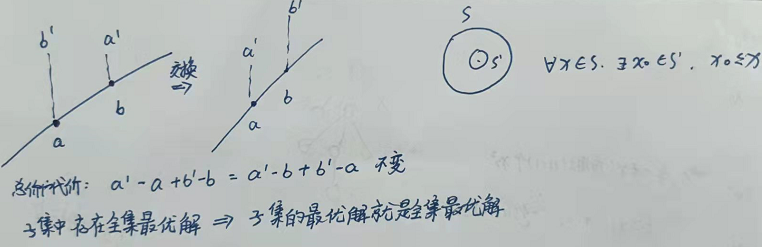 b' a' 交换 ⇒ a' b'
a b a b
S S' ∀x∈S. ∃x₀∈S'. x₀≤x
总价代价: a'-a+b'-b = a'-b+b'-a 不变
子集中存在全集最优解 ⇒ 子集的最优解就是全集最优解